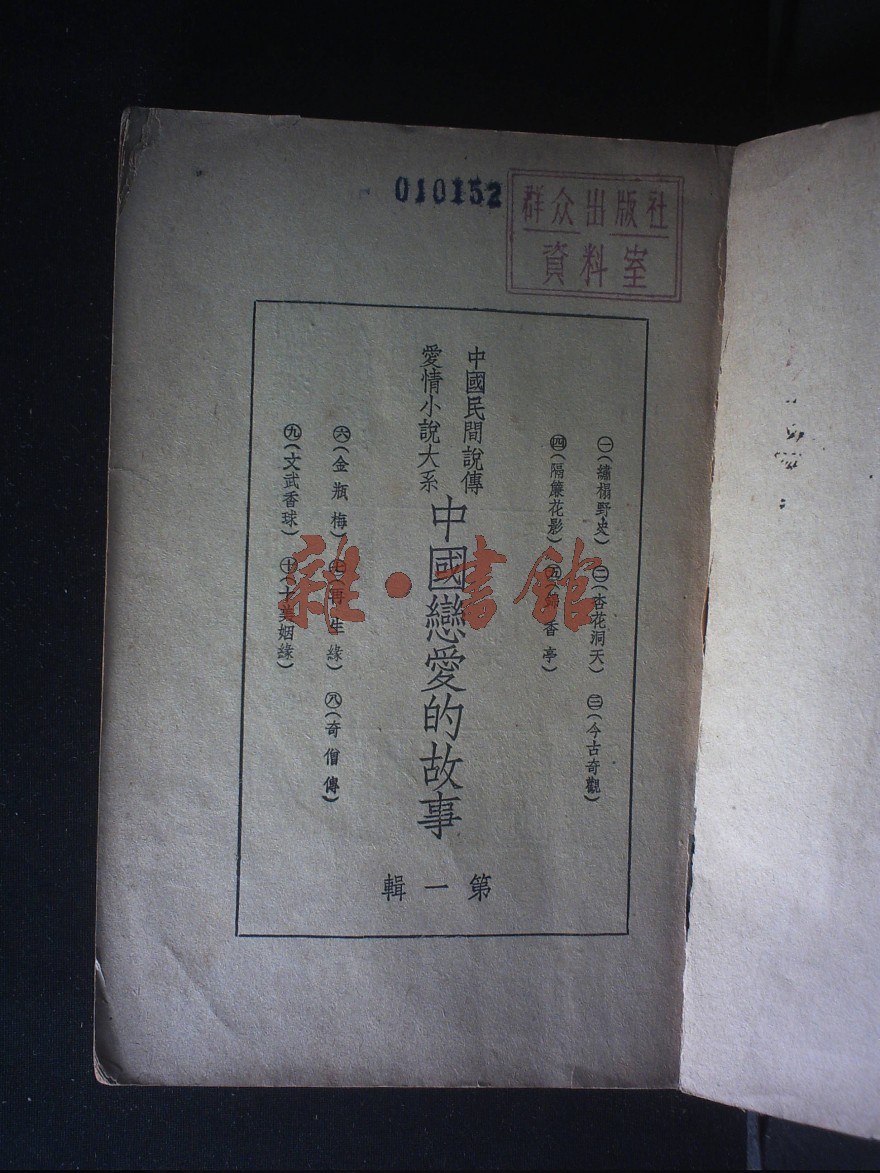 010152
群众出版社
資料室
㊀(繡榻野史) ㊁(杏花洞天) ㊂(今古奇觀)
㊃(隔簾花影) ㊄ 香亭)
中國民間說傳
愛情小說大系
中國戀愛的故事
第一輯
㊅(金瓶梅) ㊆(再生緣) ㊇(奇僧傳)
㊈(文武香球) ㊉(十美姻緣)
雜·書館